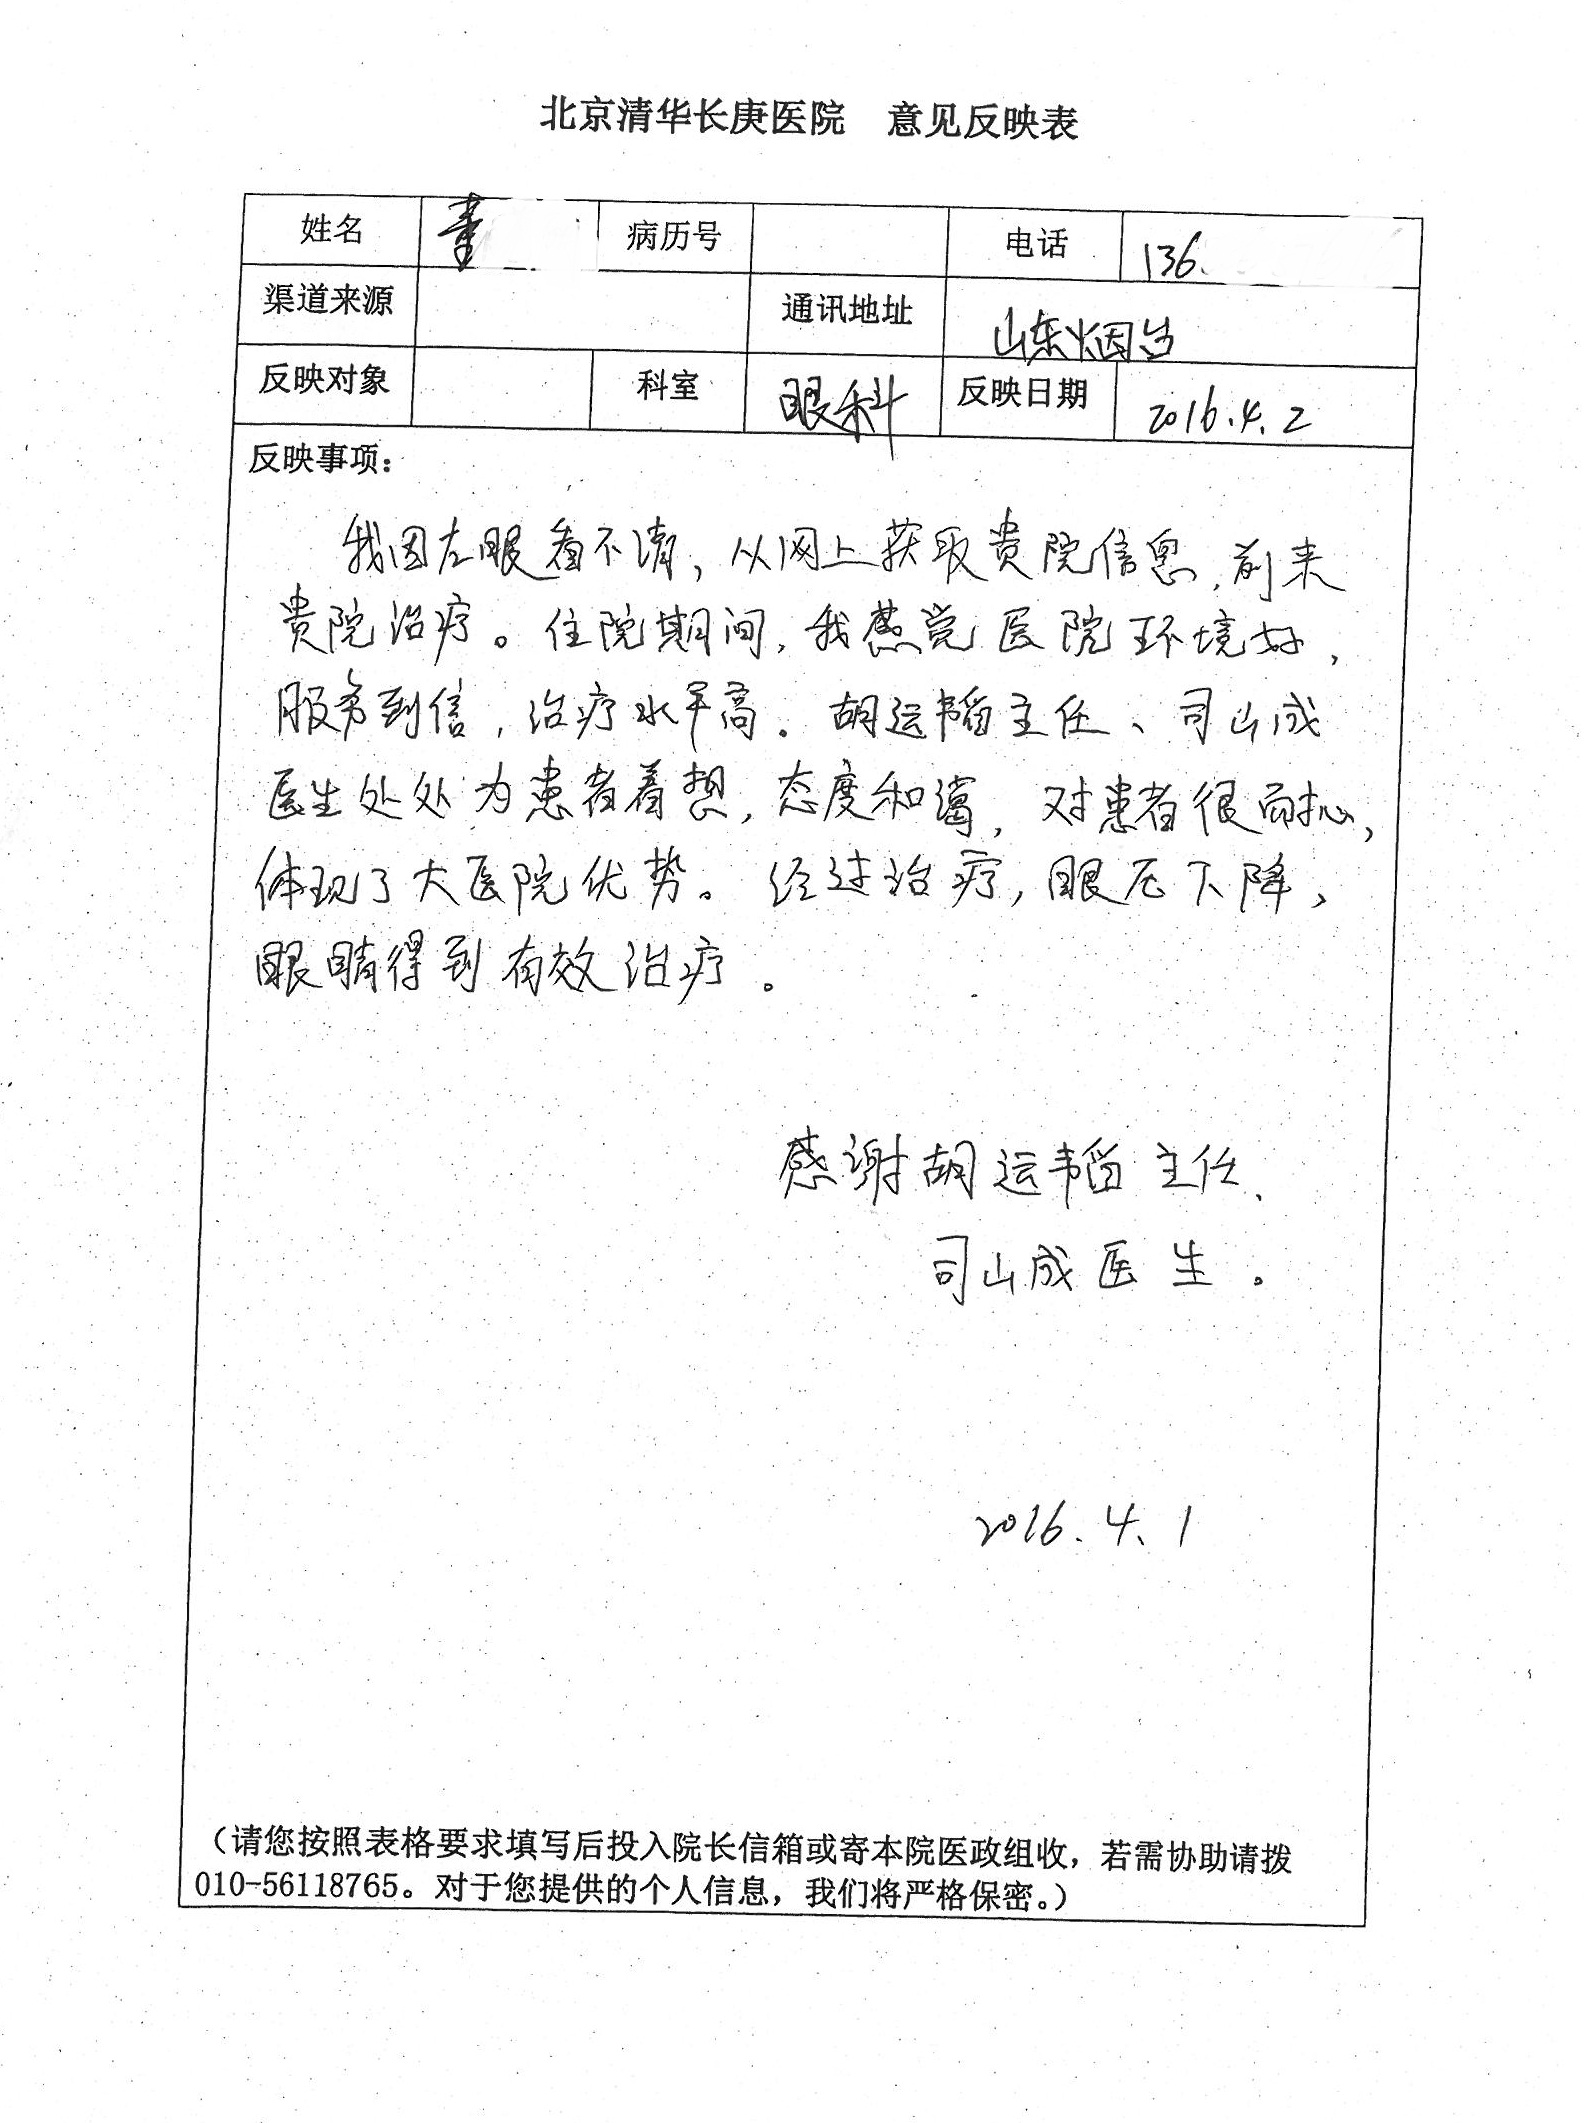 北京清华长庚医院 意见反映表
姓名 病历号 电话 136.
渠道来源 通讯地址 山东烟台
反映对象 科室 眼科 反映日期 2016.4.2
反映事项:
我因左眼看不清，从网上获取贵院信息，前来
贵院治疗。住院期间，我感觉医院环境好，
服务到信，治疗水平高。胡运韬主任、司山成
医生处处为患者着想，态度和蔼，对患者很耐心，
体现了大医院优势。经过治疗，眼压下降，
眼睛得到有效治疗。
感谢胡运韬主任、
司山成医生。
2016.4.1
（请您按照表格要求填写后投入院长信箱或寄本院医政组收，若需协助请拨
010-56118765。对于您提供的个人信息，我们将严格保密。）